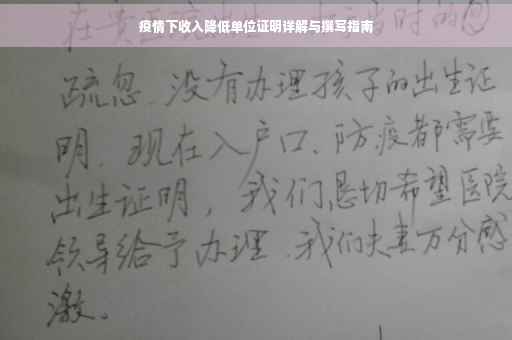 疫情下收入降低单位证明详解与撰写指南
时的
疏忽、没有办理孩子的出生证
明、现在入户口、防疫都需要
出生证明，我们恳切希望医院
领导给予办理、我们夫妻万分感
激。